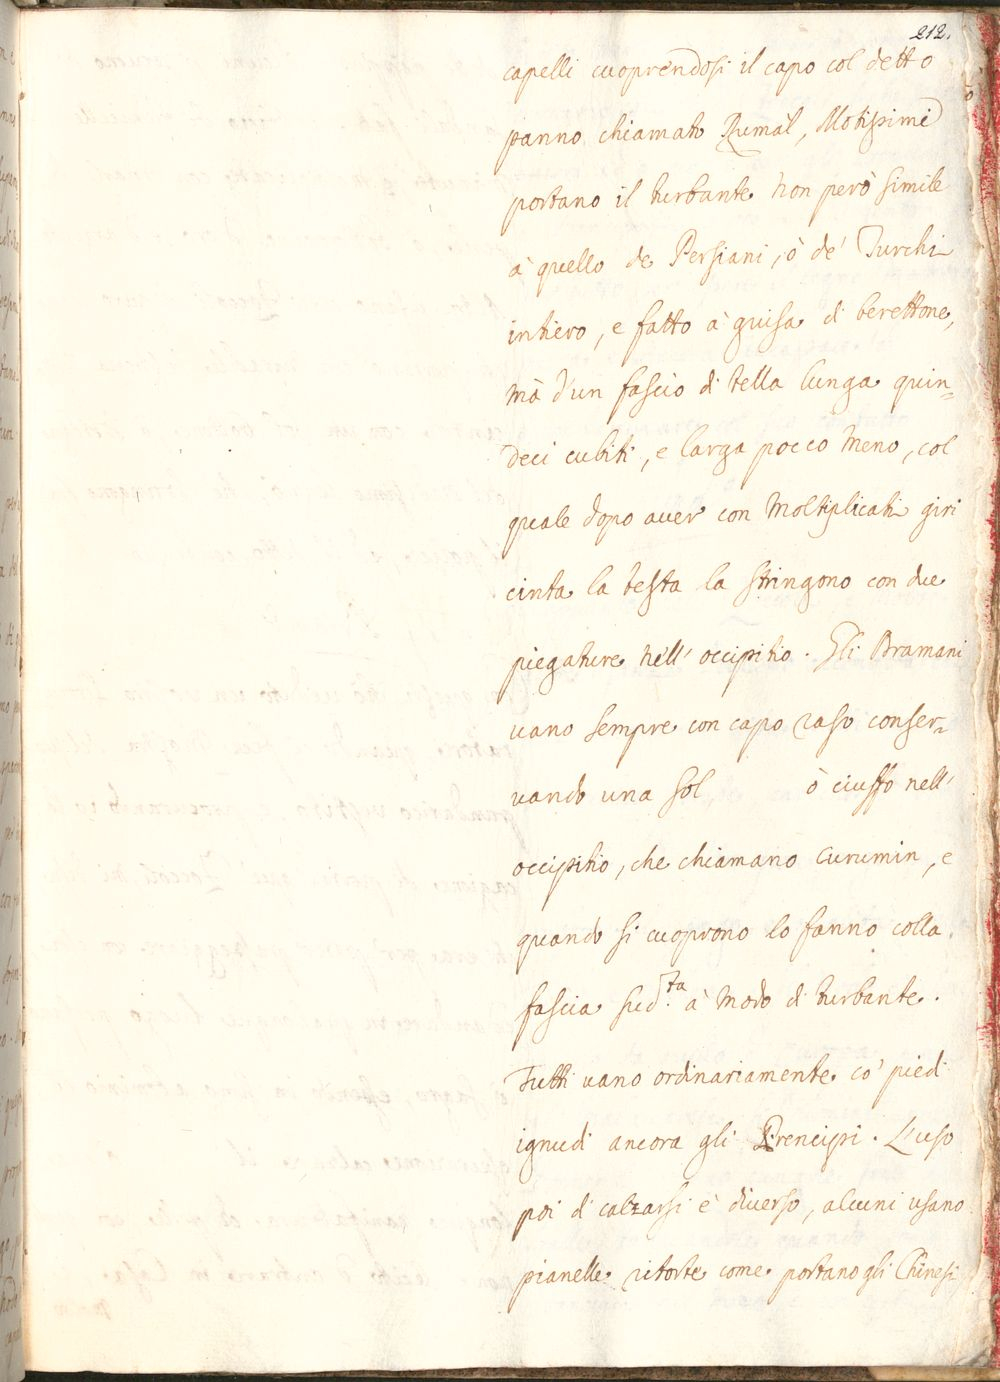 212.
capelli cuoprendosi il capo col detto
panno chiamato Rumal, Motissimi
portano il turbante non però simile
à quello de Persiani, ò de' Turchi
intiero, e fatto à guisa di berettone,
mà d'un fascio di tella lunga quin-
deci cubiti, e larga pocco meno, col
quale dopo auer con moltiplicati giri
cinta la testa la stringono con due
piegature nell' occipitio. Gli Bramani
uano sempre con capo raso conser-
uando una sol ò ciuffo nell'
occipitio, che chiamano Curumin, e
quando si cuoprono lo fanno colla
fascia sud.ta à modo di turbante.
Tutti uano ordinariamente co' piedi
ignudi ancora gli Prencipi. L'uso
poi di calzarsi è diuerso, alcuni usano
pianelle ritorte come portano gli Chinesi